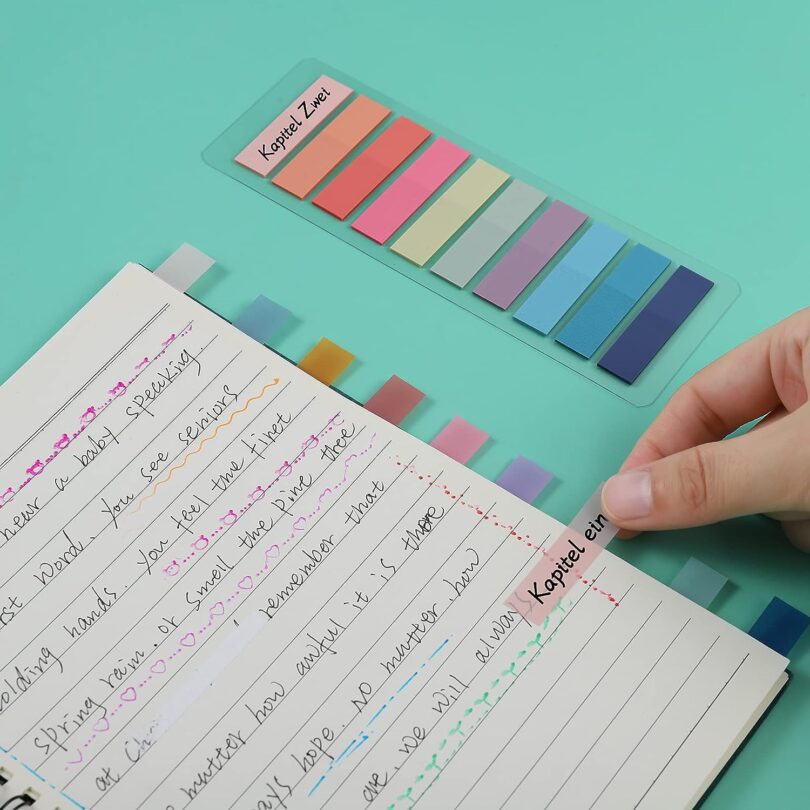 Kapitel Zwei
Kapitel ein
hear a baby speaking.
word. You see seniors
olding hands you feel the finet
spring rain. or smell the pine thee
at remember that
matter how awful it is there
ays hope. No matter how
are. we will always